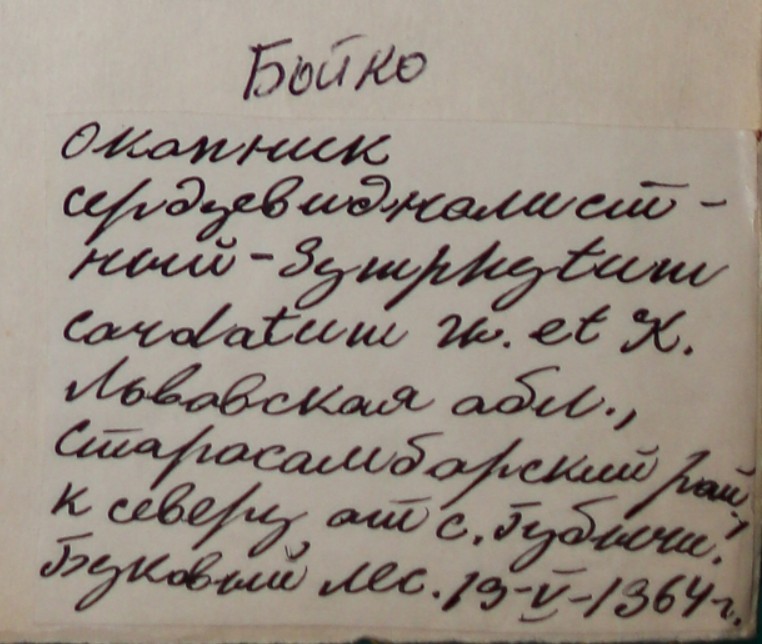 Бойко
Окопник
сердцевиднолист-
ный - Symphytum
cordatum W. et K.
Львовская обл.,
Старосамборский рай.,
к северу от с. Губичи.
Буковый лес. 19-V-1964 г.